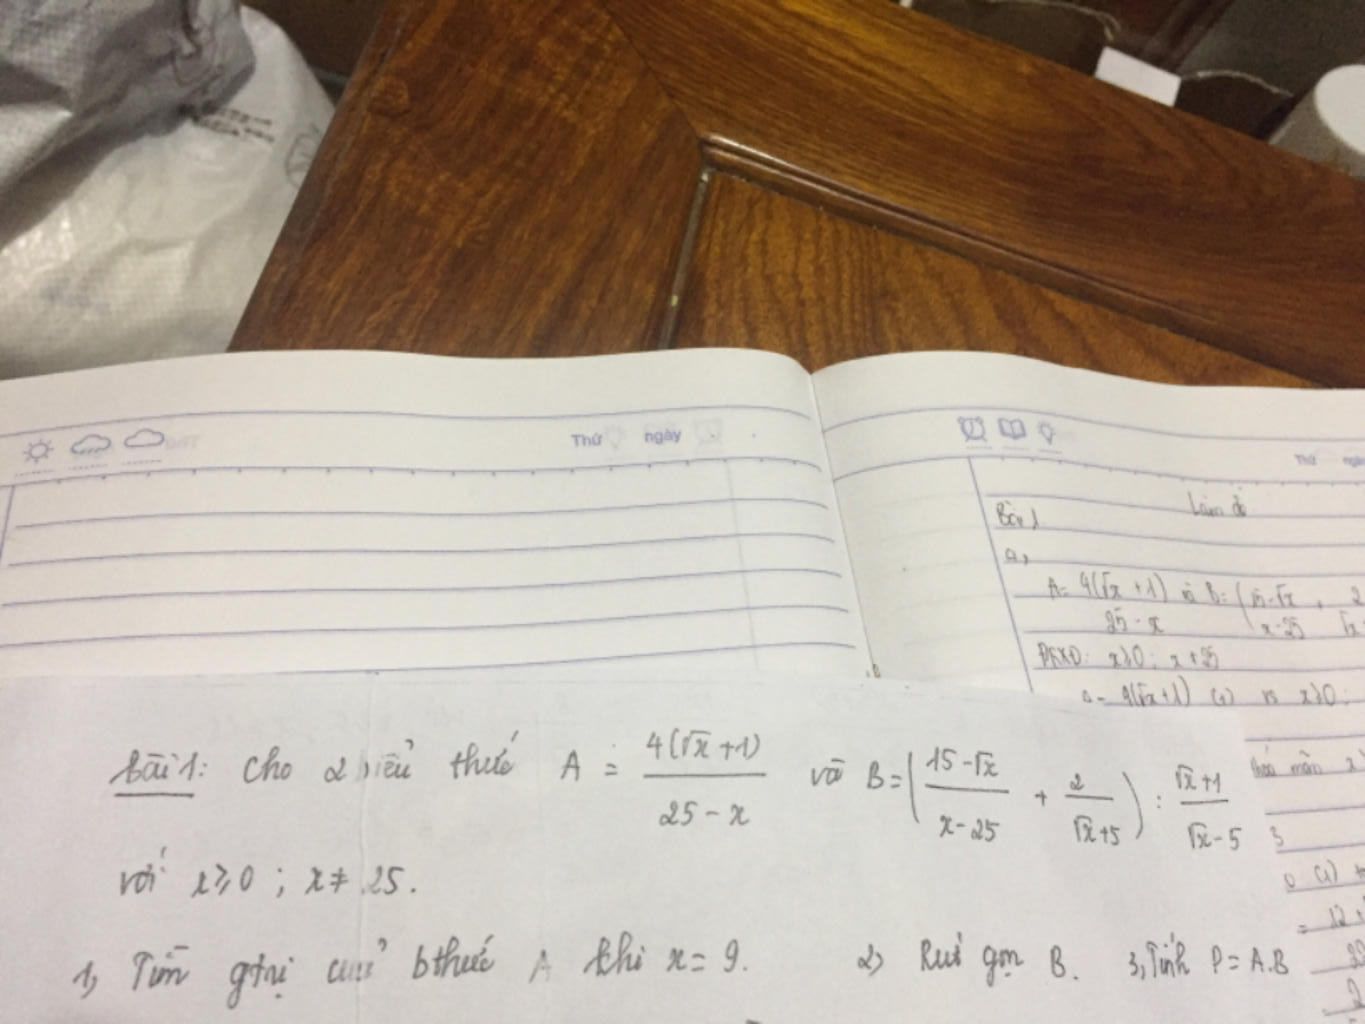 Thứ ngày
Thứ ngày
Bài 1
a,
A= 4(√x +1) và B= (15-√x + 2
25-x x-25 √x
ĐKXĐ: x≥0; x≠25
4(√x+1) (1) x≥0;
thỏa mãn x
Bài 1: Cho 2 biểu thức A = 4(√x+1)/(25-x) và B = ((15-√x)/(x-25) + 2/(√x+5)) : (√x+1)/(√x-5)
với x≥0 ; x≠25.
1, Tìm gtrị của bthức A khi x=9. 2, Rút gọn B. 3, Tính P=A.B